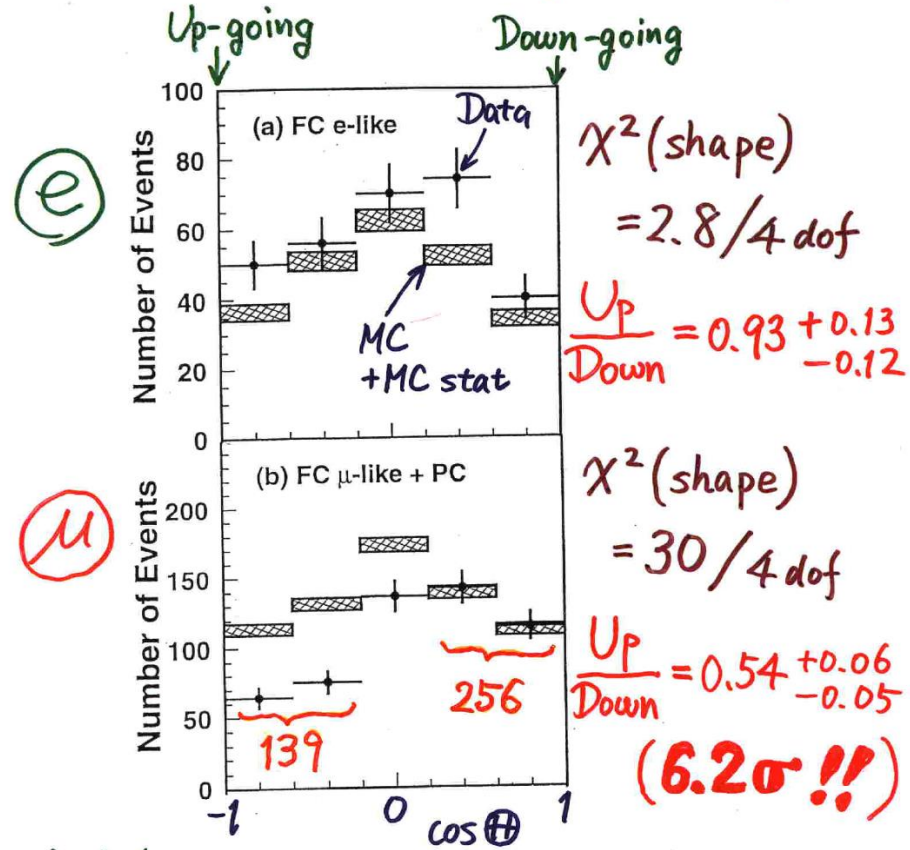 Up-going
Down-going
100
80
60
40
20
0
Number of Events
(a) FC e-like
Data
MC
+MC stat
e
χ² (shape)
= 2.8/4 dof
Up/Down = 0.93 +0.13 -0.12
200
150
100
50
0
Number of Events
(b) FC μ-like + PC
μ
139
256
χ² (shape)
= 30/4 dof
Up/Down = 0.54 +0.06 -0.05
(6.2σ !!)
-1
0
1
cos Θ